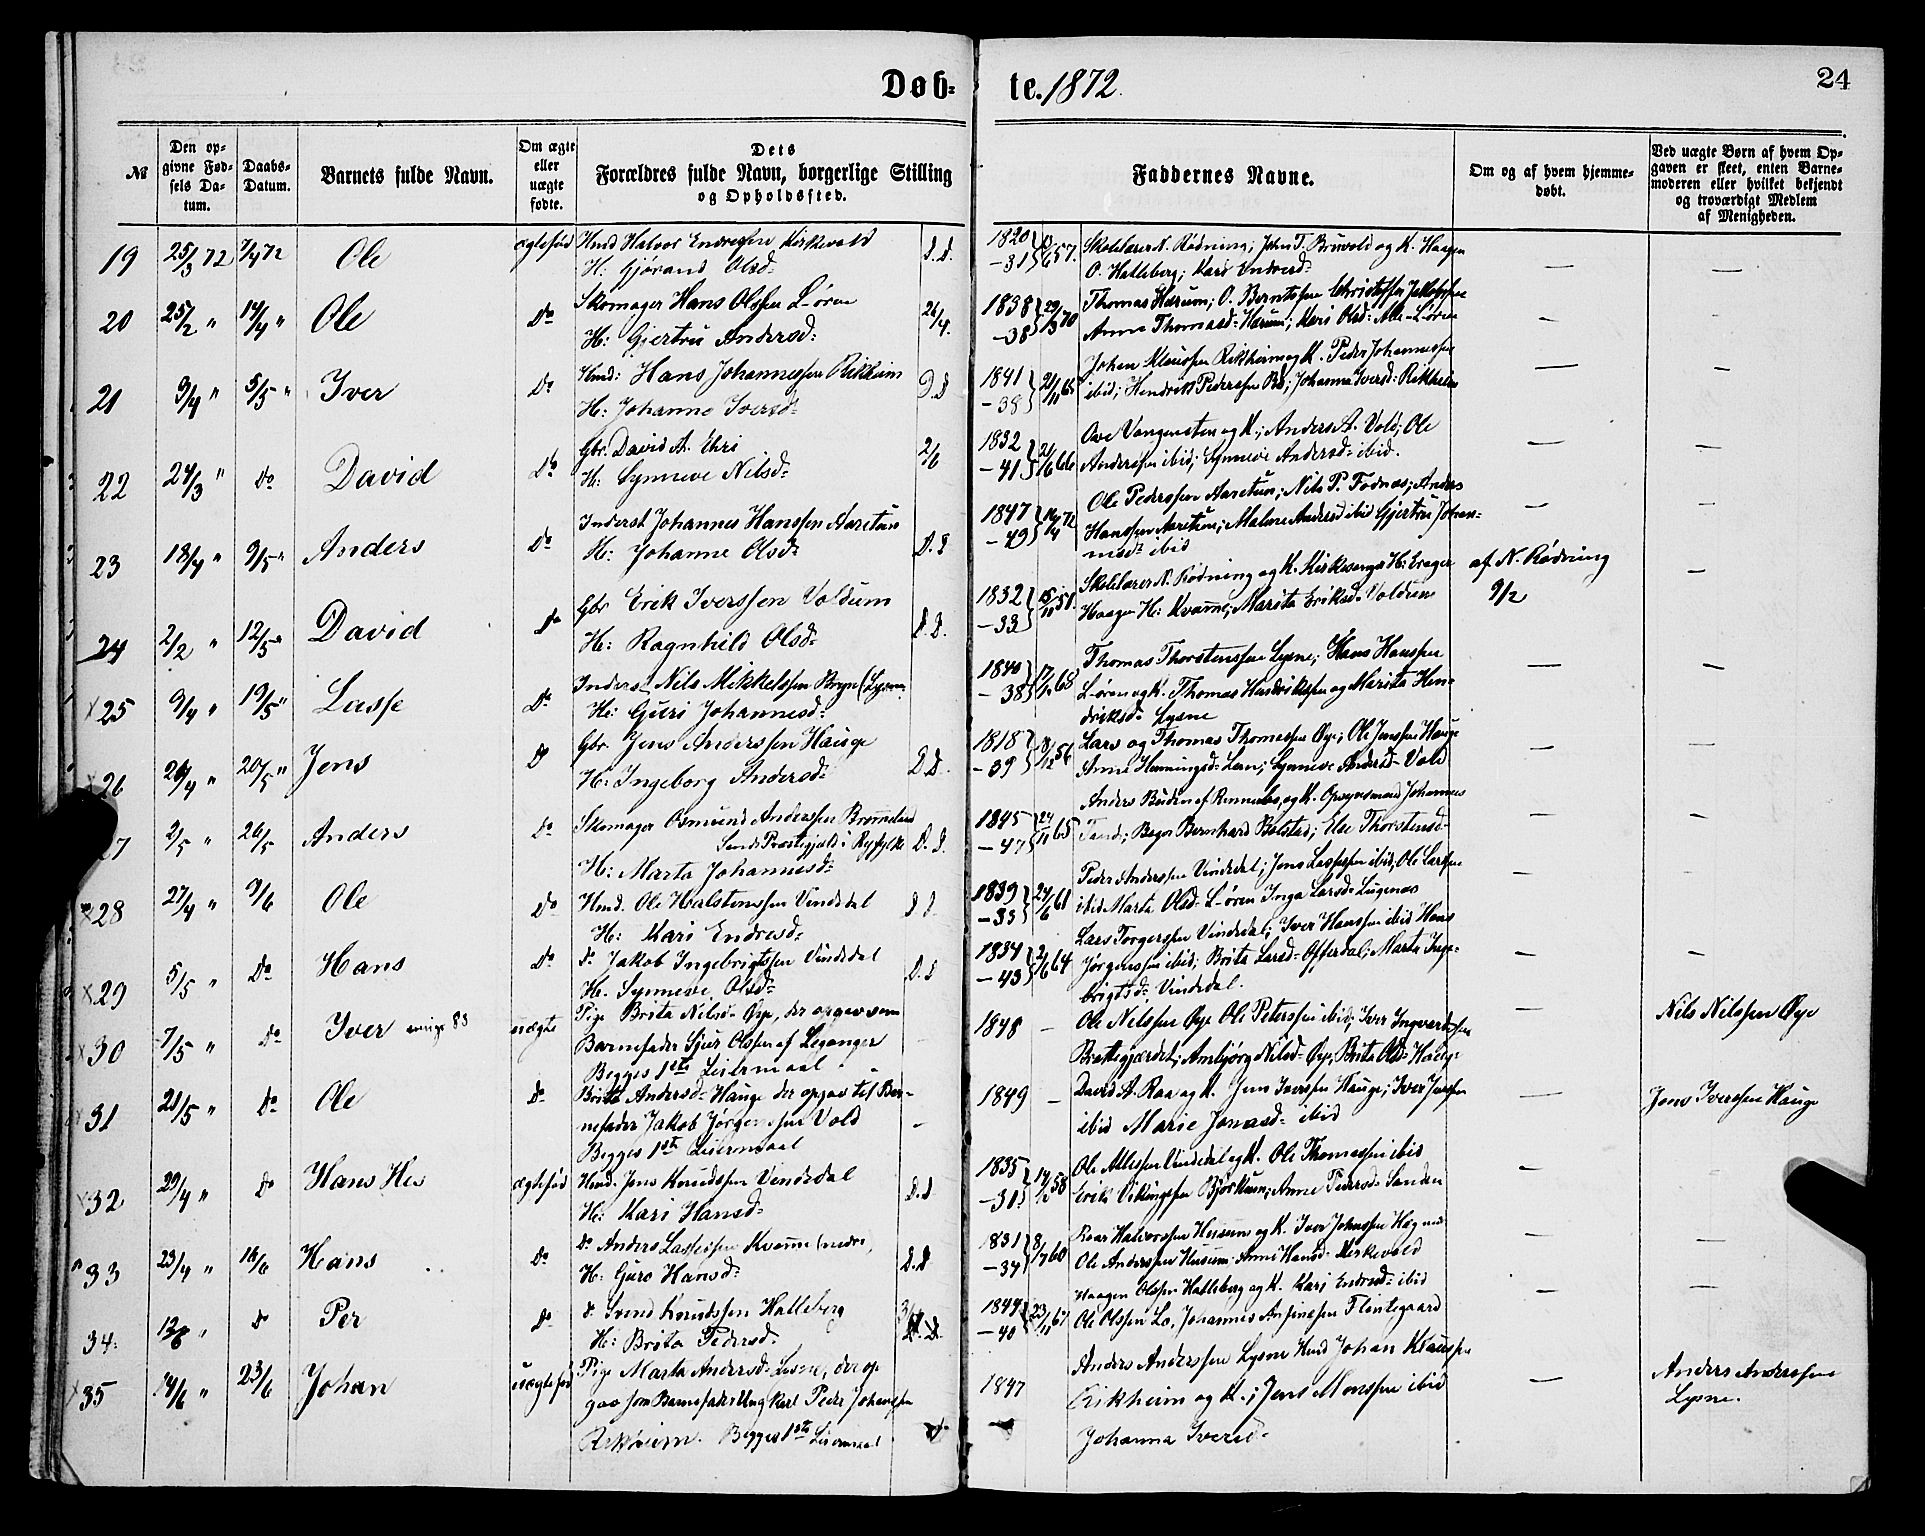 Døb=
te. 1872.
24
№
Den op=
givne Fød=
sels Da=
tum.
Daabs=
Datum.
Barnets fulde Navn.
Om ægte
eller
uægte
fødte.
Dets
Forældres fulde Navn, borgerlige Stilling
og Opholdssted.
Faddernes Navne.
Om og af hvem hjemme=
døbt.
Ved uægte Børn af hvem Op=
gaven er skeet, enten Barne=
moderen eller hvilket bekjendt
og troværdigt Medlem
af Menigheden.
19 25/3 72 7/4 72 Ole ægtefød Hmd Halvor Endresen Kirkevold
H: Gjørand Olsd=
D.D.
1820
-31 57.
Skolelærer N. Rødning; John T. Bruvold og K. Haagen
O. Hatleberg; Kari Endresd=
20 25/2 " 14/4 " Ole Do Skomager Hans Olssen L-øren
H: Gjertru Andersd:
26/4.
1838
-38 70
Thomas Hærum; O. Berntssen Christoffer Jakobssen
Anne Thomasd= Hærum; Kari Olsd= L-øren
21 9/4 " 5/5 " Iver Do Hmd: Hans Johannessen Rikheim
H: Johanne Iversd=
D.D
1841
-38 21/11 65
Johan Klaussen Rikheim og K. Peder Johannessen
ibid; Hendrik Pederssen Bø; Johanna Iversd= Rikheim
22 24/3 " Do David Do Gbr. David A. Ehri
H: Synneve Nilsd=
2/6
1832
-41 21/6 66
Ove Vangensten og K; Anders A. Vold; Ole
Anderssen ibid; Synneve Andersd= ibid.
23 18/4 " 9/5 " Anders Do Inderst Johannes Hanssen Aaretun
H: Johanne Olsd=
D.D
1847
-49 14/4 72
Ole Pederssen Aaretun; Nils P. Fodnæs; Anders
Hanssen Aaretun; Malene Andersd ibid Gjertru Johan-
nesd= ibid
24 2/2 " 12/5 " David Do Gbr Erik Iverssen Voldum
H: Ragnhild Olsd=
D.D.
1832
-33 15/11 51.
Skolelærer N. Rødning og K. Kirkesanger H: Erager
Haagen H: Kvamme; Marita Eriksd= Voldum
af N. Rødning
9/2
25 9/4 " 19/5 " Lasse Do Inderst Nils Mikkelssen Bryn (Lysne
H: Guri Johannesd:
1840
-38 17/12 68
Thomas Thorstenssen Lysne; Hans Hanssen
L-øren og K. Thomas Hendrikssen og Marita Hen-
driksd= Lysne
26 26/4 " 20/5 " Jens Do Gbr. Jens Anderssen Hauge
H: Ingeborg Andersd=
D.D.
1818
-39 56
Lars og Thomas Thomessen Øye; Ole Jenssen Hauge
Anne Henningsd= Leen; Synneve Andersd= Vold
27 2/5 " 26/5 Anders Do Skomager Osmund Anderssen Brommeland
Sands Præstegjæld i Ryfylke
H: Marta Johannesd=
D.D.
1845
-47 65
Anders Bruden af Rennebo, og K. Opsynsmand Johannes
Tand; Bager Bernhard Bolstad; Else Thorstensd-
28 27/4 " 9/6 Ole Do Hmd. Ole Halstenssen Vindedal
H: Kari Endresd=
D D.
1839
-33 24/6 61
Peder Anderssen Vindedal; Jens Lassessen ibid, Ole Larssen
ibid Marta Olsd= L-øren Inga Larsd= Lugenæs
29 5/5 " Do Hans Do do Jakob Ingebrigtssen Vindedal
H. Synneve Olsd=
D.D
1834
-43 2/6 64
Lars Torgerssen Vindedal; Iver Hanssen ibid Hans
Jørgenssen ibid; Brita Larsd= Offerdal; Marta Inge-
brigtsd= Vindedal.
30 7/5 " Do Iver uægte Pige Brita Nilsd= Øye, der opgav som
Barnefader Sjur Olssen af Leganger
Begges 1ste Leiermaal
1848 -
Ole Nilssen Øye Ole Peterssen ibid; Iver Ingvardssen
Brattegjærdet; Ambjørg Nilsd= Øye; Brita Olsd= Hauge
Nils Nilssen Øye
31 21/5 " Do Ole Do Brita Andersd= Hauge der opgav til Bar-
nefader Jakob Jørgenssen Vold
Begges 1ste Leiermaal
1849 -
David A. Raa og K. Jens Iverssen Hauge; Iver Jenssen
ibid Marie Jonasd= ibid
Jens Iverssen Hauge
32 29/4 " Do Hans ægtefød Hmd. Jens Knudssen Vindedal
H: Kari Hansd=
D.D
1835
-31 58
Ole Atlessen Vindedal og K. Ole Thomessen ibid
Erik Vikingssen Bjørkum; Anne Pedersd= Sanden
33 23/4 " 16/6 Hans Do Do Anders Lassessen Kvamme (nedre,
H: Guro Hansd=
D.D
1831
-34 8/7 60
Roar Halvorssen Husum og K. Iver Johnssen Hægnes
Ole Anderssen Husum. Anne Hansd= Kirkevold
34. " Do Per Do d. Svend Knudssen Hatleberg
H: Brita Pedersd=
D.D.
1844
-40 23/11 67
Haagen Olssen Hatleberg og K. Kari Endresd= ibid
Ole Olssen Lo, Johannes Anfinssen Flintegaard
35 14/6 " 23/6 Johan uægtefød Pige Marta Andersd= Lysne, der op
gav som Barnefader Ungkarl Peder Johanssen
Rikheim. Begges 1ste Leiermaal
1847
Anders Anderssen Lysne Hmd Johan Klaussen
Rikheim og K.; Jens Monssen ibid
Johanna Iversd=
Anders Anderssen
Lysne.